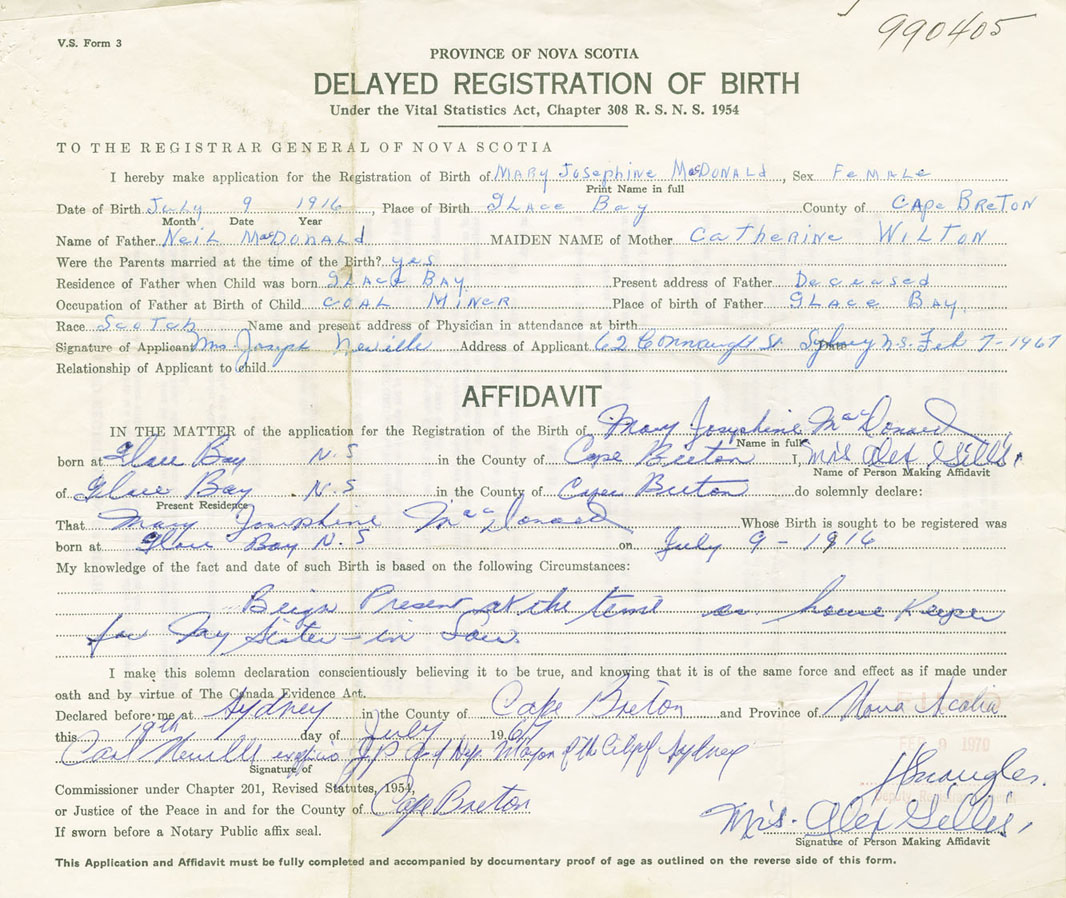 990405
V.S. Form 3
PROVINCE OF NOVA SCOTIA
DELAYED REGISTRATION OF BIRTH
Under the Vital Statistics Act, Chapter 308 R. S. N. S. 1954
TO THE REGISTRAR GENERAL OF NOVA SCOTIA
I hereby make application for the Registration of Birth of MARY JoSephine MacDoNALd, Sex FeMALe
Print Name in full
Date of Birth July 9 1916, Place of Birth GLACE BAY County of CApe BReToN
Month Date Year
Name of Father NeiL MacDONALd MAIDEN NAME of Mother CAtheRiNe WILTON
Were the Parents married at the time of the Birth? yes
Residence of Father when Child was born GLACE BAY Present address of Father DeceAsed
Occupation of Father at Birth of Child COAL MiNeR Place of birth of Father GLACE BAY
Race Scotch Name and present address of Physician in attendance at birth
Signature of Applicant Mrs Joseph Neville Address of Applicant 62 Connaught St. Sydney N.S. Date Feb 7-1967
Relationship of Applicant to child
AFFIDAVIT
IN THE MATTER of the application for the Registration of the Birth of Mary Josephine MacDonald
Name in full
born at Glace Bay N.S in the County of Cape Breton I, Mrs Alex Gillis
Name of Person Making Affidavit
of Glace Bay N.S in the County of Cape Breton do solemnly declare:
Present Residence
That Mary Josephine MacDonald Whose Birth is sought to be registered was
born at Glace Bay N.S on July 9-1916
My knowledge of the fact and date of such Birth is based on the following Circumstances:
Beign Present at the teme as house Keeper
for My Sister-in Law.
I make this solemn declaration conscientiously believing it to be true, and knowing that it is of the same force and effect as if made under
oath and by virtue of The Canada Evidence Act.
Declared before me at Sydney in the County of Cape Breton and Province of Nova Scotia
this 19th day of July 1967
FEB 9 1970
Carl Neville exofficio J.P. and Dep. Mayor of the City of Sydney
Signature of
Commissioner under Chapter 201, Revised Statutes, 1954,
or Justice of the Peace in and for the County of Cape Breton
If sworn before a Notary Public affix seal.
Mrs. Alex Gillis.
Signature of Person Making Affidavit
This Application and Affidavit must be fully completed and accompanied by documentary proof of age as outlined on the reverse side of this form.